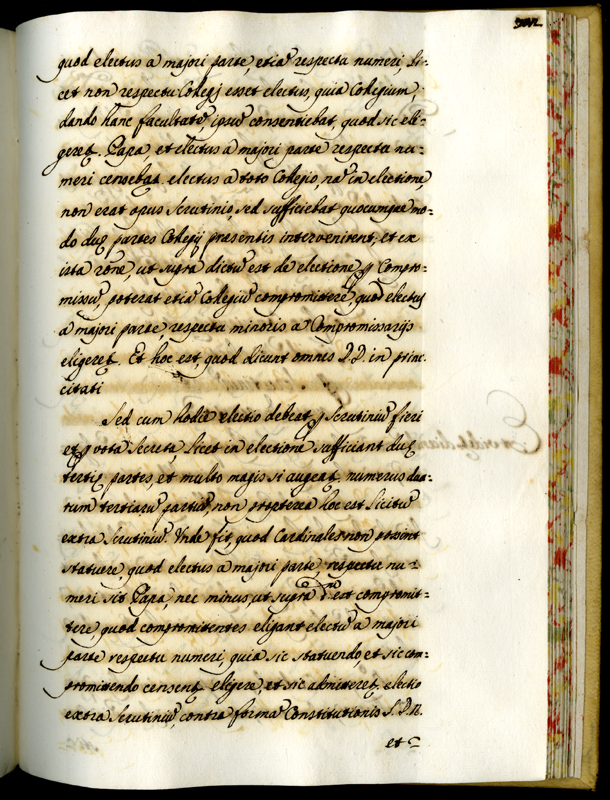 quod electus a majori parte, etiã respectu numeri, li=
cet non respectu Collegij esset electus, quia Collegium
dando hanc facultatẽ, ipsũ consentiebat, quod sic eli=
geret. Papa et electus a majori parte respectu nu=
meri censebat. electus a toto Collegio, nã in electione,
non erat opus scrutinio, sed sufficiebat quocumque mo=
do duę partes Collegij presentis intervenirent, et ex
ista rõne, ut supra dictũ est de electione p Compro=
missũ, poterat etiã Collegiũ compromittere, quod electus
a majori parte respectu minoris a Compromissarijs
eligeret. Et hoc est, quod dicunt omnes DD. in princ.
citati
Sed cum hodie electio debeat p scrutiniũ fieri
et p vota secreta, licet in electione sufficiant duę
tertię partes, et multo magis si augeat. numerus dua=
rum tertiarũ partiũ, non propterea hoc est licitũ
extra scrutiniũ. Unde fit, quod Cardinales non possint
statuere, quod electus a majori parte, respectu nu=
meri sit Papa, nec minus, ut supra est compromit=
tere, quod compromittentes eligant electũ a majori
parte respectu numeri, quia sic statuendo, et sic com=
promittendo censent. eligere, et sic admitteret. electio
extra scrutiniũ, contra formã Constitutionis S. D. N.
et